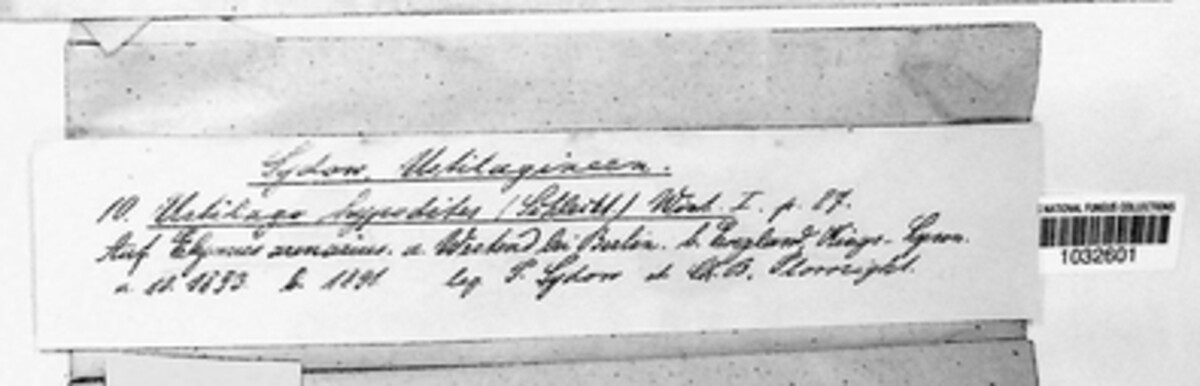 Sydow, Ustilagineen.
10. Ustilago hypodites (Schlecht.) Wint. I. p. 87.
Auf Elymus arenarius. a. Westend bei Berlin. b. England, Kings-Lynn.
a. 10. 1893 b. 1891 leg. P. Sydow et C. B. Plowright.
NATIONAL FUNGUS COLLECTIONS
1032601